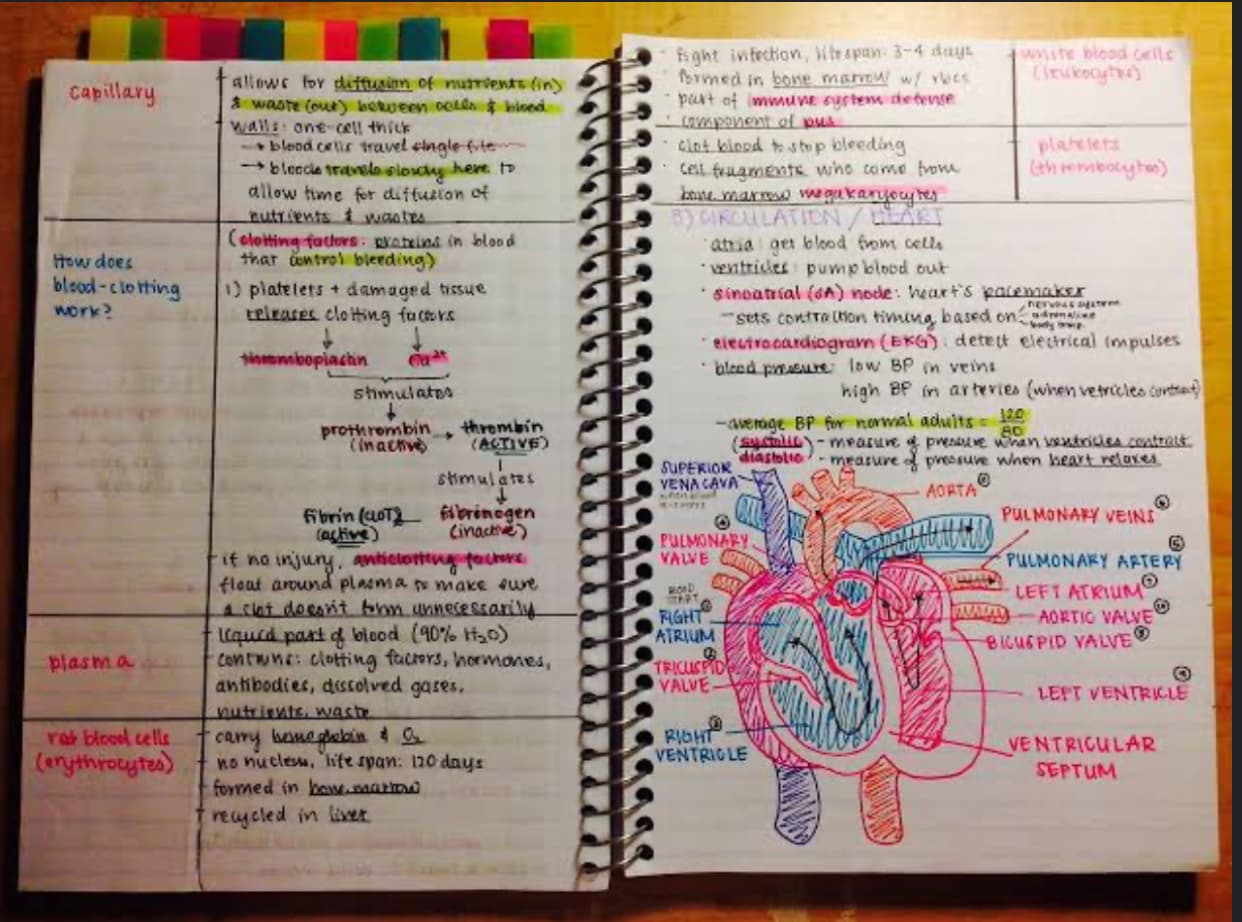 capillary
allows for diffusion of nutrients (in)
& waste (out) between cells & blood
walls: one-cell thick
→ blood cells travel single-file
→ blood travels slowly here to
allow time for diffusion of
nutrients & wastes
How does
blood-clotting
work?
(clotting factors: proteins in blood
that control bleeding)
1) platelets + damaged tissue
releases clotting factors
thromboplastin Ca²⁺
stimulates
prothrombin → thrombin
(inactive) (ACTIVE)
stimulates
fibrin (CLOT) fibrinogen
(active) (inactive)
if no injury, anticlotting factors
float around plasma to make sure
a clot doesn't form unnecessarily
plasma
liquid part of blood (90% H₂O)
contains: clotting factors, hormones,
antibodies, dissolved gases,
nutrients, waste
red blood cells
(erythrocytes)
carry hemoglobin & O₂
no nucleus, lifespan: 120 days
formed in bone marrow
recycled in liver
white blood cells
(leukocytes)
· fight infection, lifespan: 3-4 days
· formed in bone marrow w/ rbcs
· part of immune system defense
· component of pus
platelets
(thrombocytes)
· clot blood to stop bleeding
· cell fragments who come from
bone marrow megakaryocytes
B) CIRCULATION / HEART
· atria: get blood from cells
· ventricles: pump blood out
· sinoatrial (SA) node: heart's pacemaker
– sets contraction timing based on
nervous system
adrenaline
body temp.
· electrocardiogram (EKG): detect electrical impulses
· blood pressure: low BP in veins
high BP in arteries (when vetricles contract)
– average BP for normal adults = 120/80
(systolic) - measure of pressure when ventricles contract
diastolic - measure of pressure when heart relaxes
SUPERIOR
VENA CAVA
AORTA
PULMONARY VEINS ⑥
④
PULMONARY
VALVE
⑤
PULMONARY ARTERY
LEFT ATRIUM ⑦
START
①
RIGHT
ATRIUM
AORTIC VALVE ⑩
BICUSPID VALVE ⑧
②
TRICUSPID
VALVE
LEFT VENTRICLE ⑨
③
RIGHT
VENTRICLE
VENTRICULAR
SEPTUM